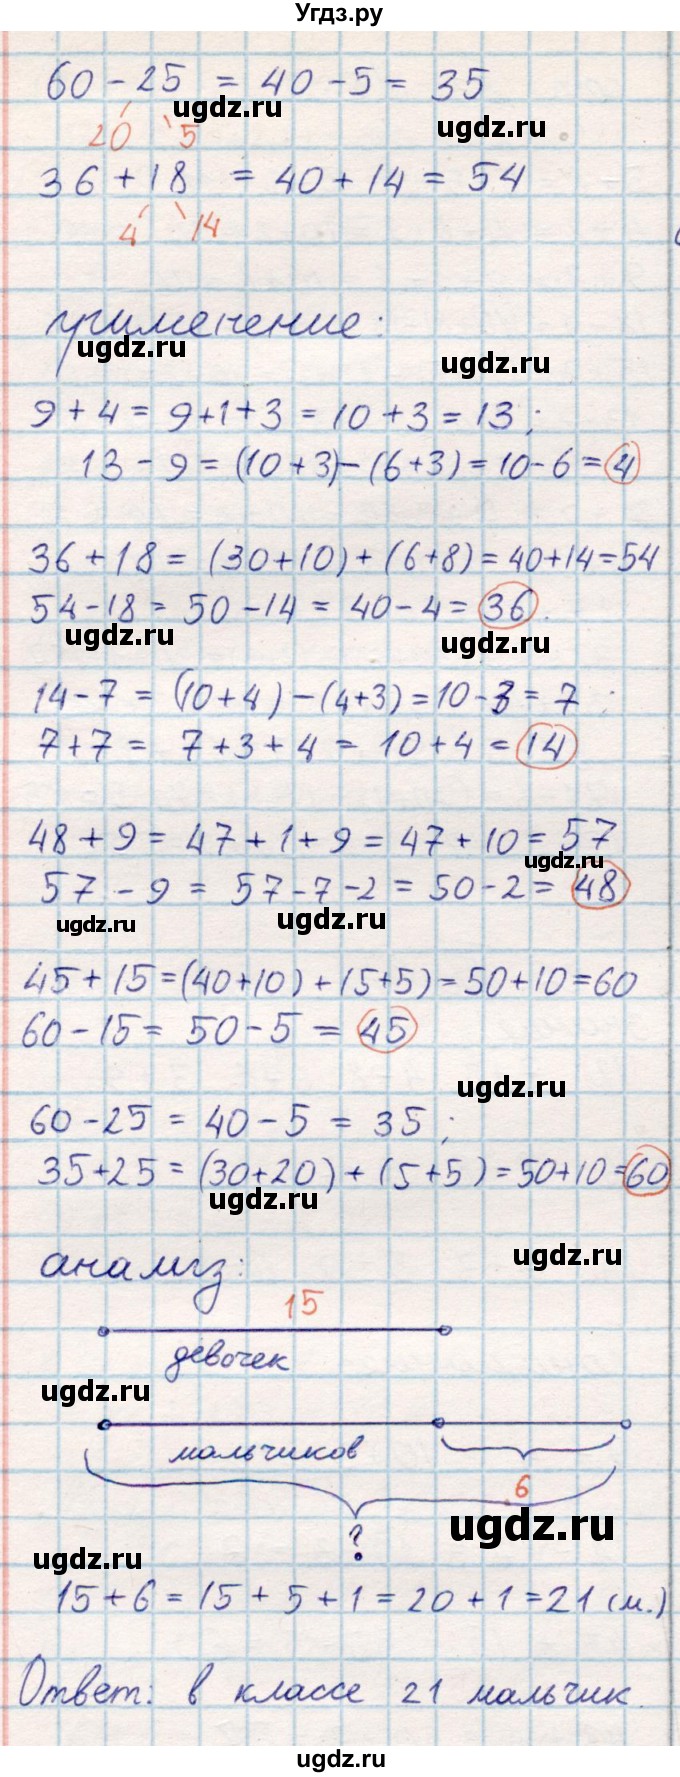 Угдз.ру
60 - 25 = 40 - 5 = 35
ugdz.ru
ugdz.ru
20 5
36 + 18 = 40 + 14 = 54
4 14
применение:
ugdz.ru
ugdz.ru
9 + 4 = 9 + 1 + 3 = 10 + 3 = 13;
13 - 9 = (10 + 3) - (6 + 3) = 10 - 6 = 4
36 + 18 = (30 + 10) + (6 + 8) = 40 + 14 = 54
54 - 18 = 50 - 14 = 40 - 4 = 36.
ugdz.ru
ugdz.ru
14 - 7 = (10 + 4) - (4 + 3) = 10 - 3 = 7;
7 + 7 = 7 + 3 + 4 = 10 + 4 = 14
48 + 9 = 47 + 1 + 9 = 47 + 10 = 57
ugdz.ru
57 - 9 = 57 - 7 - 2 = 50 - 2 = 48
ugdz.ru
ugdz.ru
45 + 15 = (40 + 10) + (5 + 5) = 50 + 10 = 60
60 - 15 = 50 - 5 = 45
ugdz.ru
60 - 25 = 40 - 5 = 35;
35 + 25 = (30 + 20) + (5 + 5) = 50 + 10 = 60
ugdz.ru
анализ:
ugdz.ru
15
девочек
ugdz.ru
мальчиков
6
ugdz.ru
?
ugdz.ru
15 + 6 = 15 + 5 + 1 = 20 + 1 = 21 (м.)
Ответ: в классе 21 мальчик.
ugdz.ru